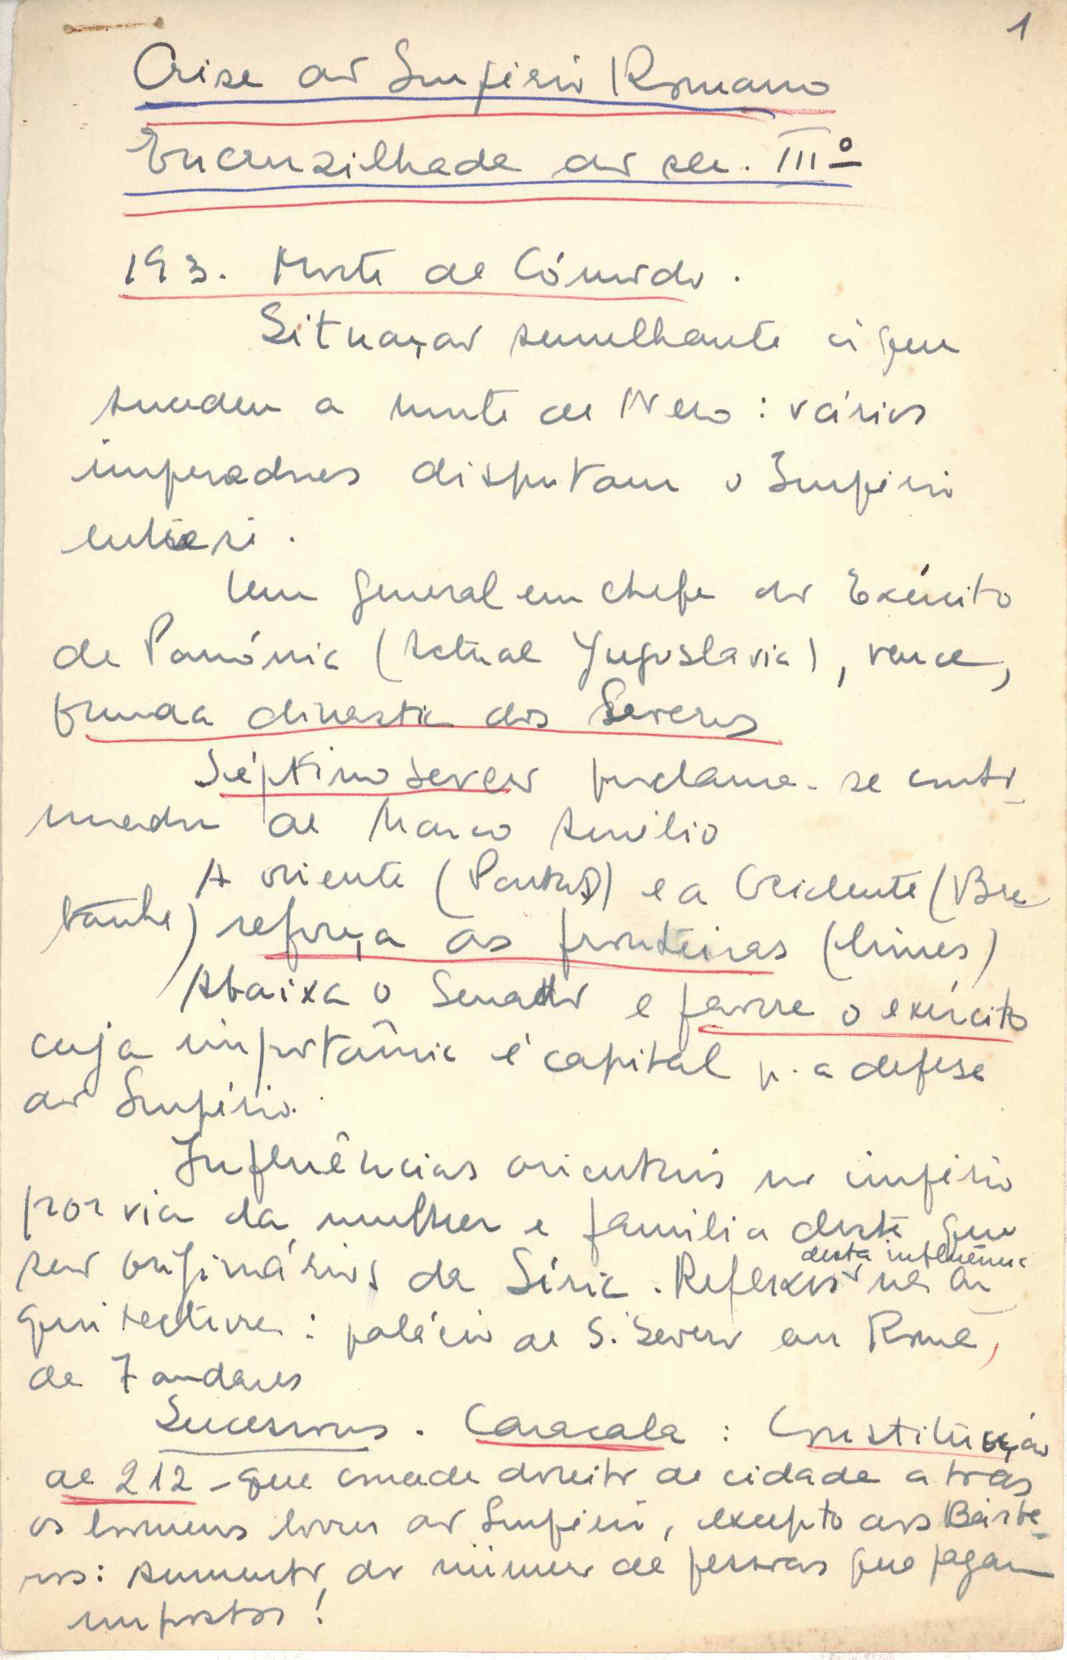 1
Crise do Império Romano
Encruzilhada do séc. IIIº
193. Morte de Cómodo.
Situação semelhante à que
sucedeu a morte de Nero : vários
imperadores disputam o Império
entre si.
Um general em chefe do Exército
da Panónia (Actual Yugoslavia), vence,
funda dinastia dos Severos
Séptimo Severo proclama-se conti-
nuador de Marco Aurélio
A oriente (Partas) e a Ocidente (Bre-
tanha) reforça as fronteiras (limes)
Abaixa o Senado e favorece o exército
cuja importância é capital p. a defesa
do Império.
Influências orientais no império
por via da mulher e familia desta que
são originários da Síria. Reflexos desta influência na ar-
quitectura : palácio de S. Severo em Roma,
de 7 andares
Sucessores. Caracala : Constituição
de 212 - que concede direito de cidade a todos
os homens livres do Império, excepto aos Bárba-
ros: aumento do número de pessoas que pagam
impostos !